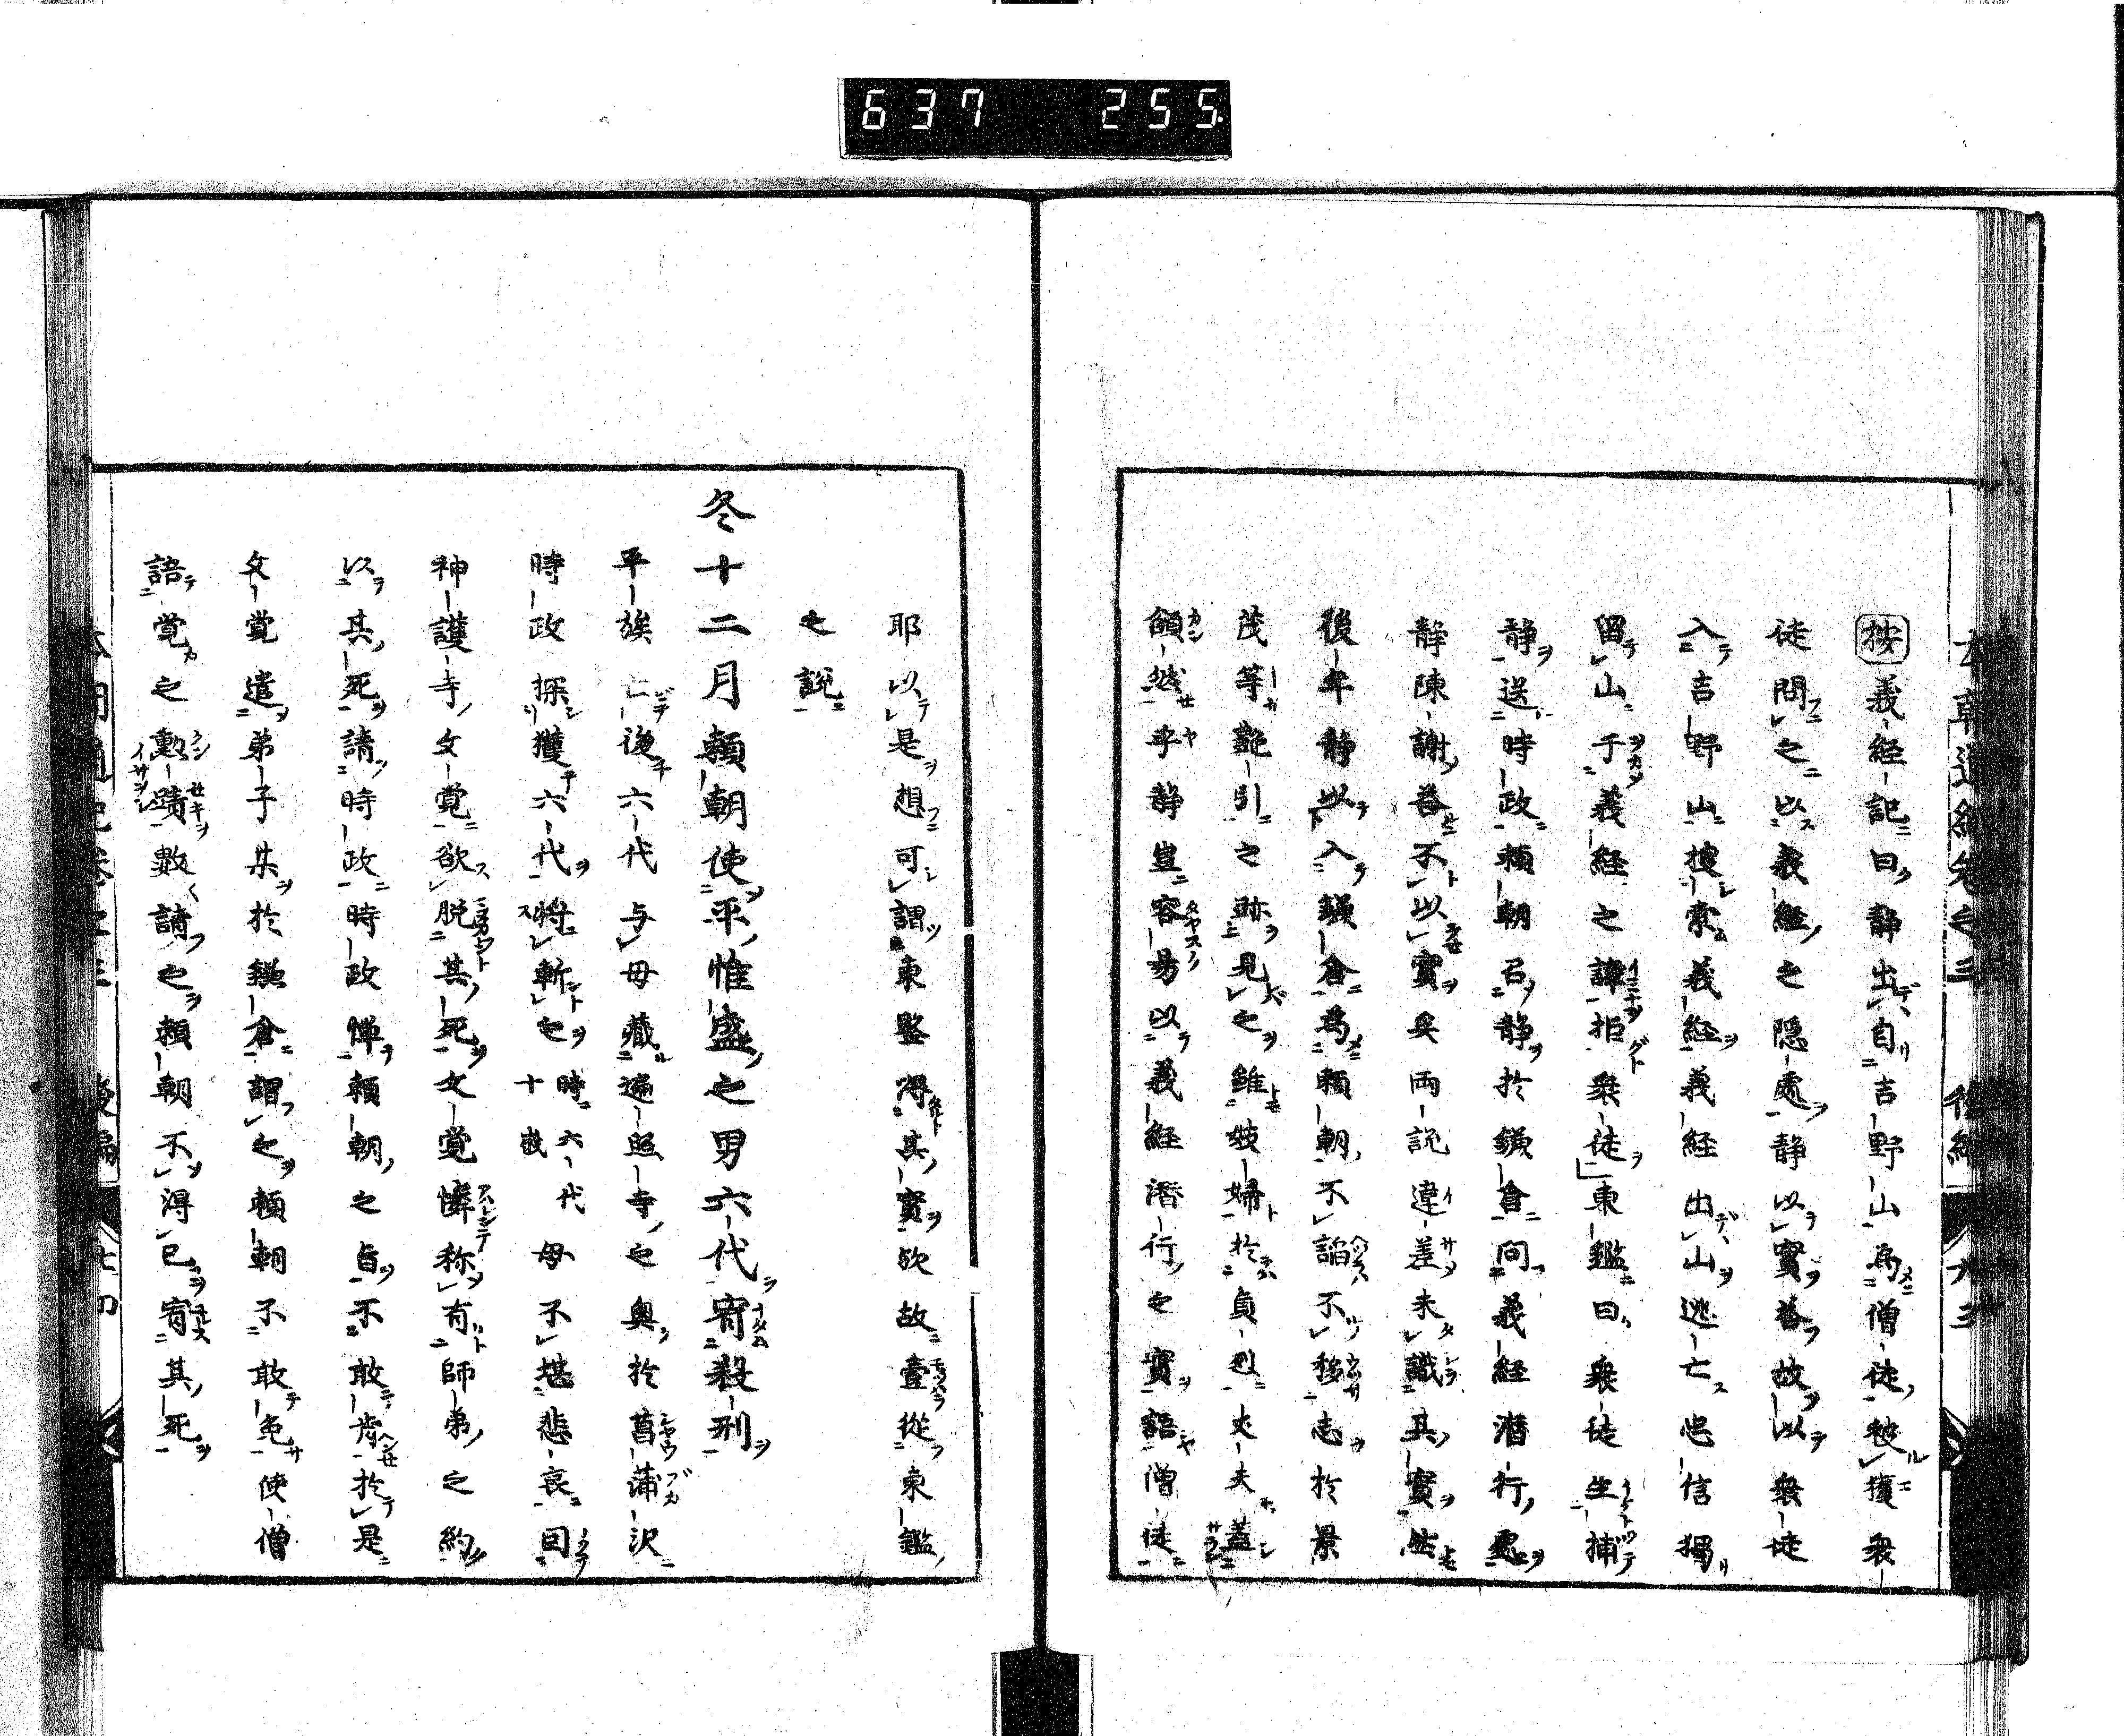 637 255
按義経記曰静出自吉野山為僧徒被獲衆
徒問之以義経之隠處静以實答故以衆徒
入吉野山捜索義経義経出山逃亡忠信獨
留山于義経之諱拒衆徒東鑑曰衆徒生捕
静送時政頼朝召静於鎌倉問義経潜行處
静陳謝答不以實矣両説違差未識其實然
後年静以入鎌倉為頼朝不諂不移志於景
茂等艶引之跡見之雖妓婦於貞烈丈夫蓋
頷然乎静豈容易以義経潜行之實語僧徒
耶以是想可謂東鑒得其實欤故壹從東鑑
之説
冬十二月頼朝使平惟盛之男六代宥殺刑
平族亡後六代与母藏遍照寺之奥於菖蒲沢
時政探獲六代将斬之時六代十歳母不堪悲哀因
神護寺文覚欲脱其死文覚憐称有師弟之約
以其死請時政時政憚頼朝之旨不敢肯於是
文覚遣弟子某於鎌倉謂之頼朝不敢免使僧
語覚之勳蹟數請之頼朝不得已宥其死